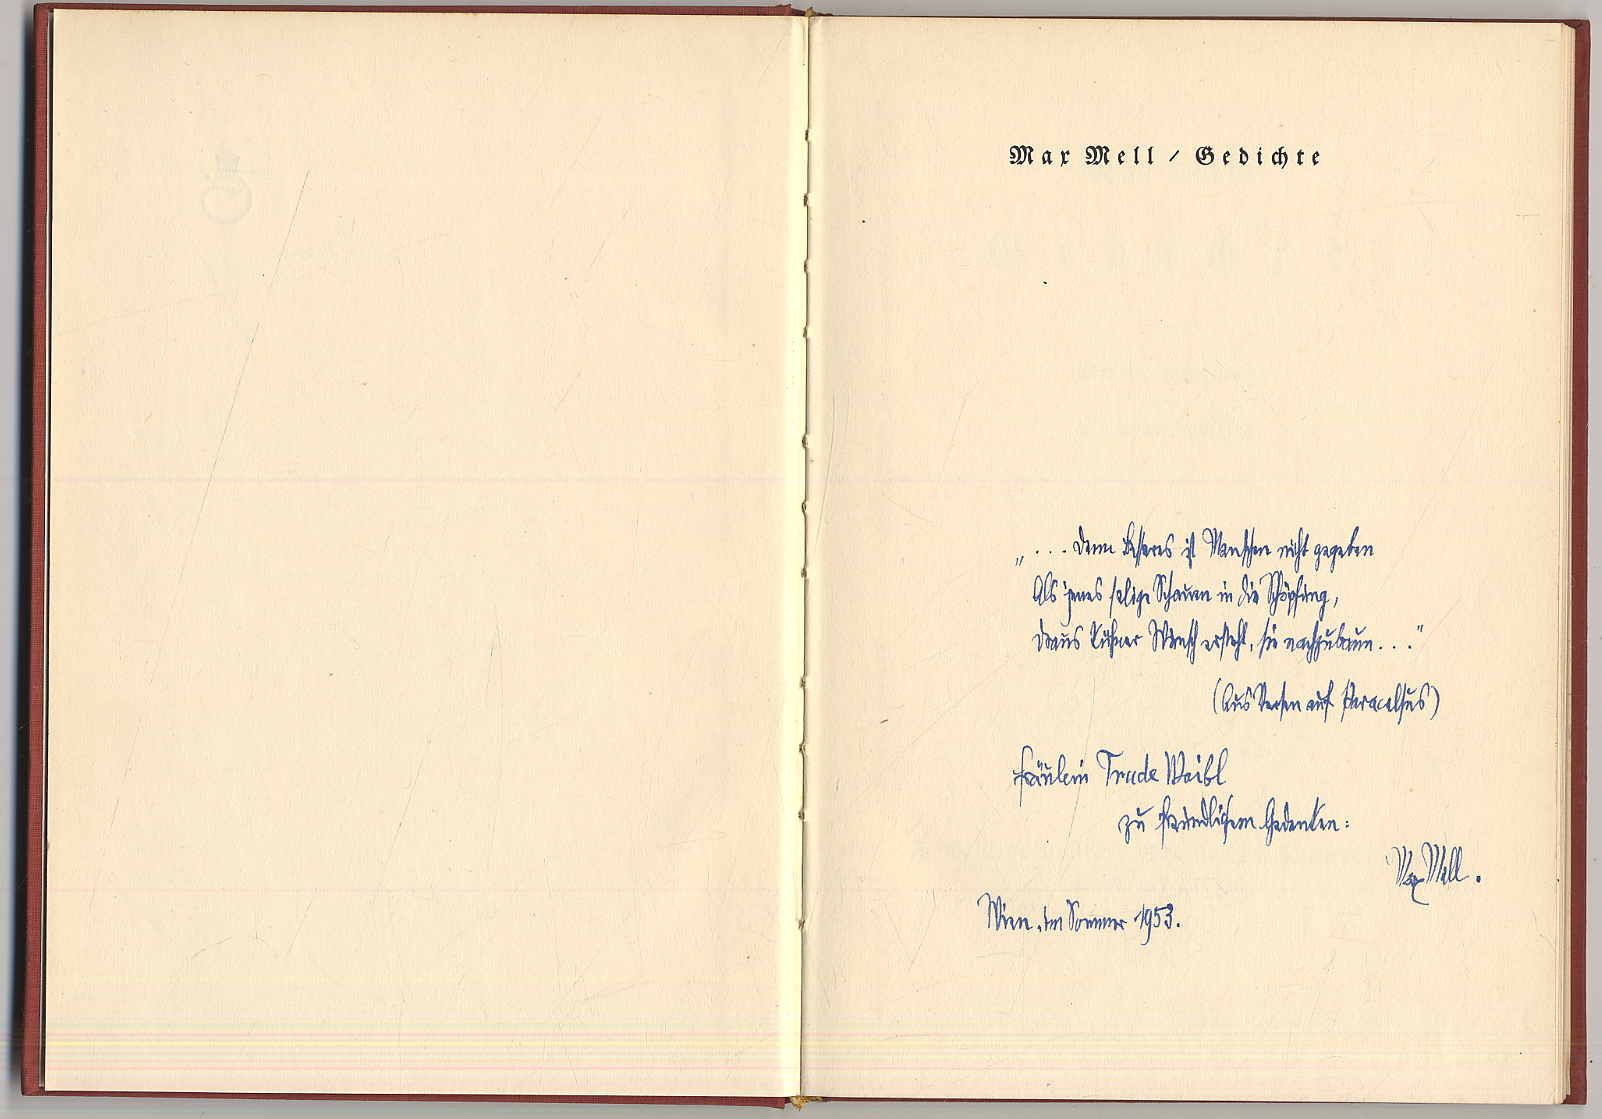 Max Mell / Gedichte
„... Denn Besseres ist Menschen nicht gegeben
Als jenes selige Schauen in die Schöpfung,
Daraus kühner Wunsch ersteht, sie nachzubaun..."
(Aus Versen auf Paracelsus)
Fräulein Trude Waibl
zu freundlichem Gedenken:
Max Mell.
Wien, im Sommer 1953.